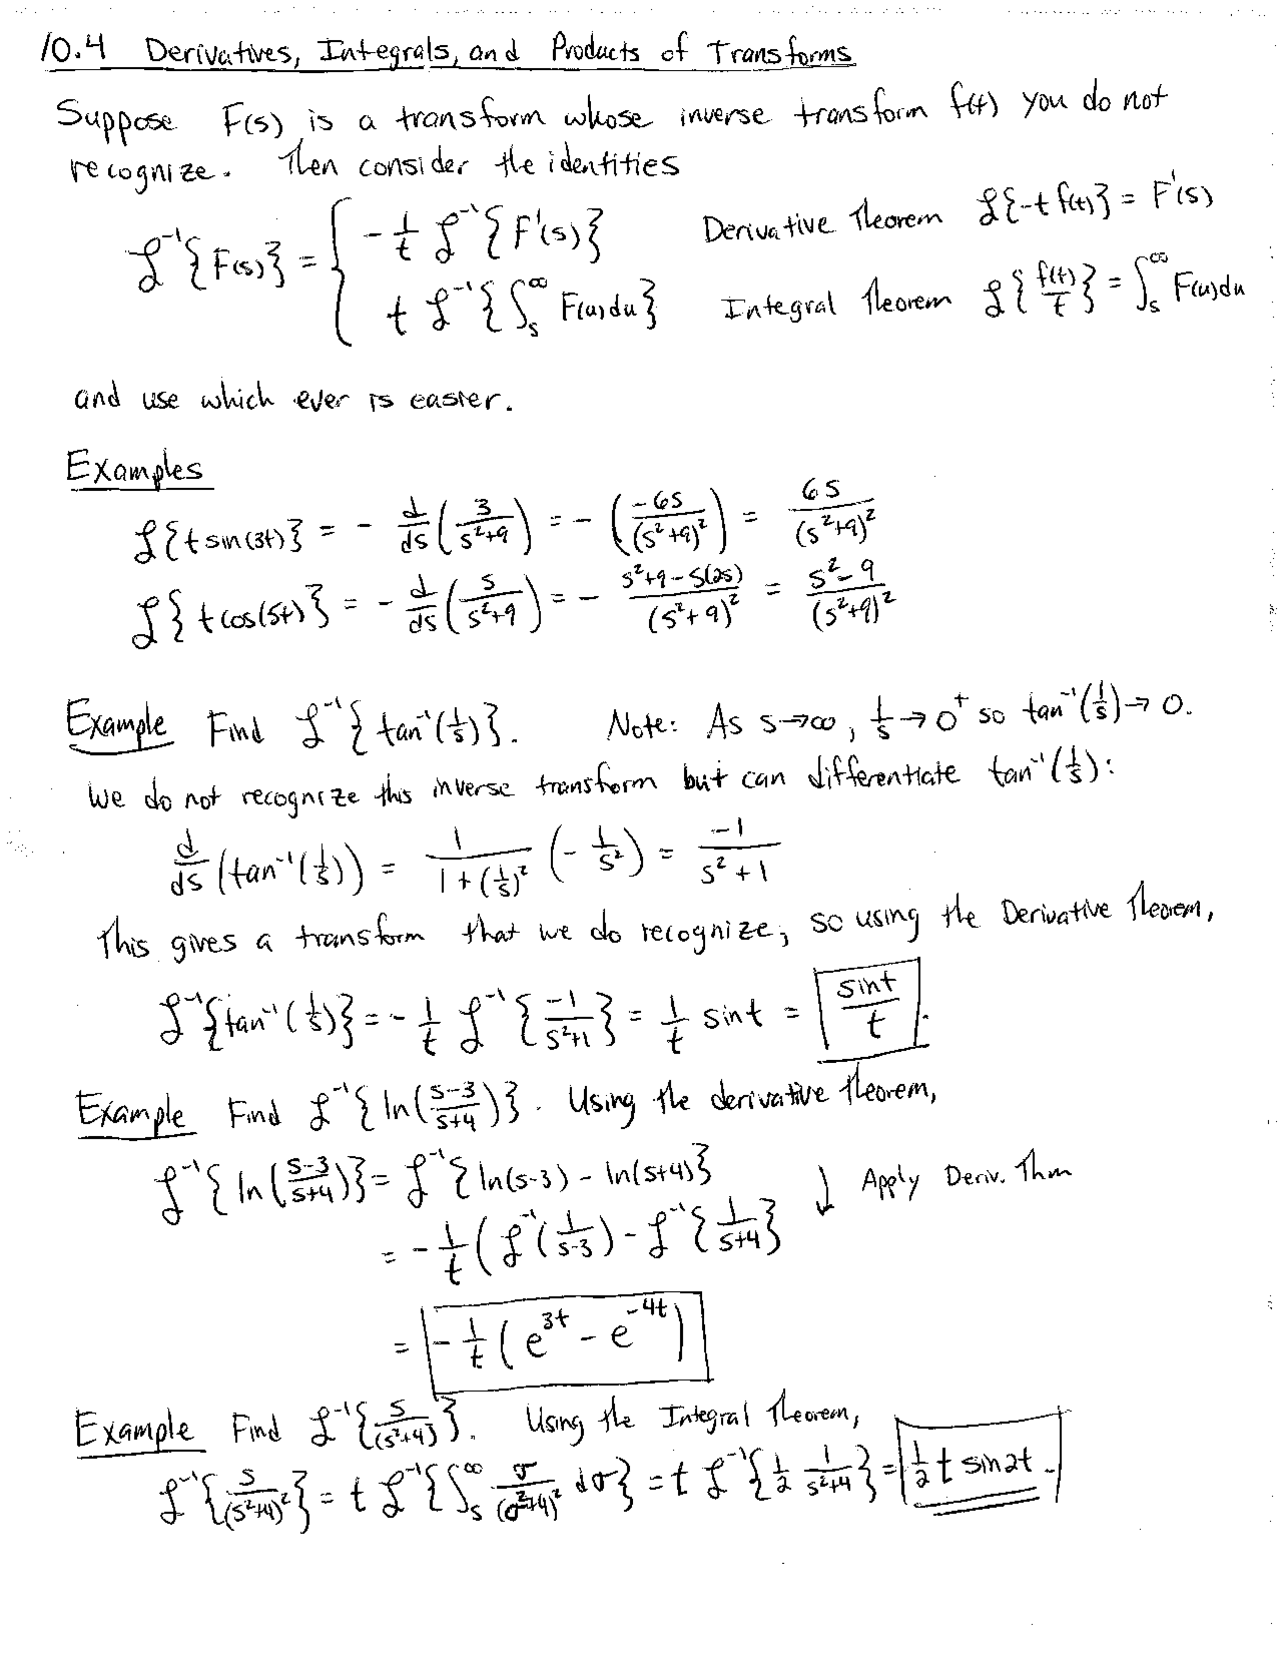 10.4 Derivatives, Integrals, and Products of Transforms
Suppose F(s) is a transform whose inverse transform f(t) you do not
recognize. Then consider the identities
ℒ⁻¹{F(s)} = { -1/t ℒ⁻¹{F'(s)} Derivative Theorem ℒ{-t f(t)} = F'(s)
t ℒ⁻¹{∫_s^∞ F(u)du} Integral Theorem ℒ{f(t)/t} = ∫_s^∞ F(u)du
and use which ever is easier.
Examples
ℒ{t sin(3t)} = - d/ds (3/(s²+9)) = - (-6s/(s²+9)²) = 6s/(s²+9)²
ℒ{t cos(5t)} = - d/ds (s/(s²+9)) = - (s²+9-s(2s))/(s²+9)² = (s²-9)/(s²+9)²
Example Find ℒ⁻¹{tan⁻¹(1/s)}. Note: As s→∞, 1/s → 0⁺ so tan⁻¹(1/s) → 0.
We do not recognize this inverse transform but can differentiate tan⁻¹(1/s):
d/ds (tan⁻¹(1/s)) = 1/(1+(1/s)²) (-1/s²) = -1/(s²+1)
This gives a transform that we do recognize, so using the Derivative Theorem,
ℒ⁻¹{tan⁻¹(1/s)} = -1/t ℒ⁻¹{-1/(s²+1)} = 1/t sin t = sin t/t.
Example Find ℒ⁻¹{ln((s-3)/(s+4))}. Using the derivative theorem,
ℒ⁻¹{ln((s-3)/(s+4))} = ℒ⁻¹{ln(s-3) - ln(s+4)} ↓ Apply Deriv. Thm
= -1/t (ℒ⁻¹(1/(s-3)) - ℒ⁻¹{1/(s+4)}
= -1/t (e^{3t} - e^{-4t})
Example Find ℒ⁻¹{s/(s²+4)²}. Using the Integral Theorem,
ℒ⁻¹{s/(s²+4)²} = t ℒ⁻¹{∫_s^∞ σ/(σ²+4)² dσ} = t ℒ⁻¹{1/2 1/(s²+4)} = 1/2 t sin2t.